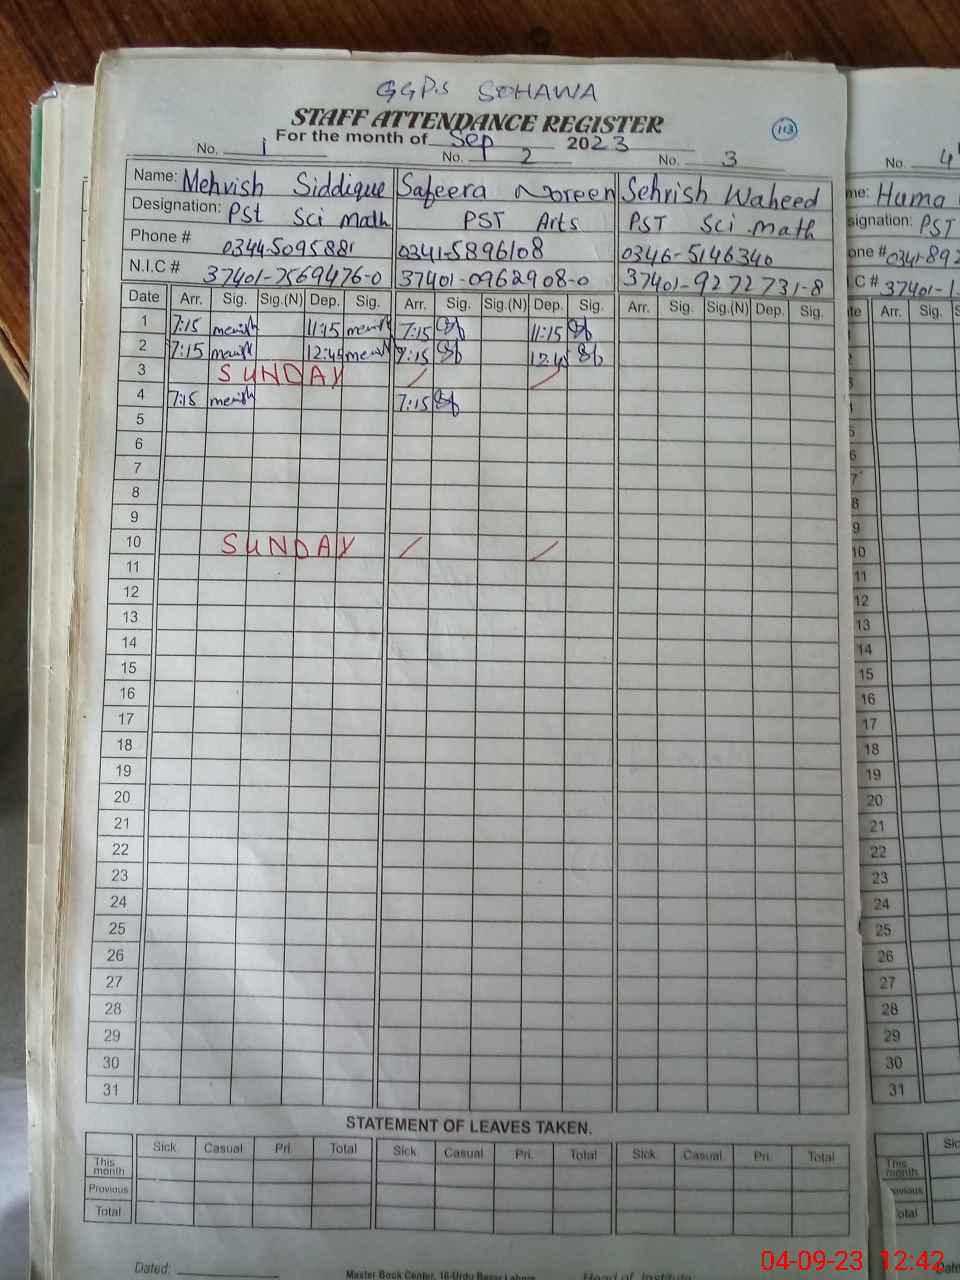 GGPS SOHAWA
STAFF ATTENDANCE REGISTER
113
For the month of Sep 2023
No. 1 No. 2 No. 3 No. 4
Name: Mehvish Siddique Safeera Noreen Sehrish Waheed me: Huma
Designation: Pst Sci math PST Arts PST Sci math signation: PST
Phone # 0344-5095881 0341-5896108 0346-5146340 one # 0341-892
N.I.C # 37401-7569476-0 37401-0962908-0 37401-9272731-8 .C # 37401-1
Date Arr. Sig. Sig.(N) Dep. Sig. Arr. Sig. Sig.(N) Dep. Sig. Arr. Sig. Sig.(N) Dep. Sig. te Arr. Sig. S
1 7:15 11:15 7:15 11:15
2 7:15 12:45 7:15 12:45
3 SUNDAY 3
4 7:15 7:15
5 5
6 6
7 7
8 8
9 9
10 SUNDAY 10
11 11
12 12
13 13
14 14
15 15
16 16
17 17
18 18
19 19
20 20
21 21
22 22
23 23
24 24
25 25
26 26
27 27
28 28
29 29
30 30
31 31
STATEMENT OF LEAVES TAKEN.
Sick Casual Pri. Total Sick. Casual Pri. Total Sick. Casual Pri. Total Sic
This month This month
Provious vious
Total otal
Dated: Master Book Center, 16-Urdu Bazar Lahore Head of Institute: Date
04-09-23 12:42